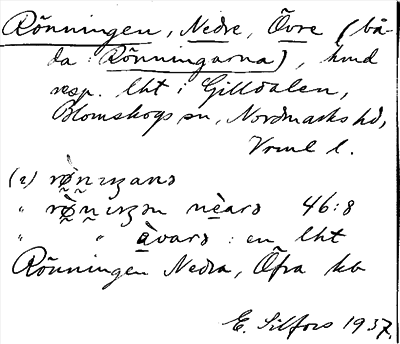 Rönningen, Nedre, Övre (bå-
da: Rönningarna), hmd
resp. lht i Gilldalen,
Blomskogs sn, Nordmarks hd,
Vrml l.
(i)
" 46:8
" " : en lht
Rönningen Nedra, Öfra kb
E. Silfors 1937.